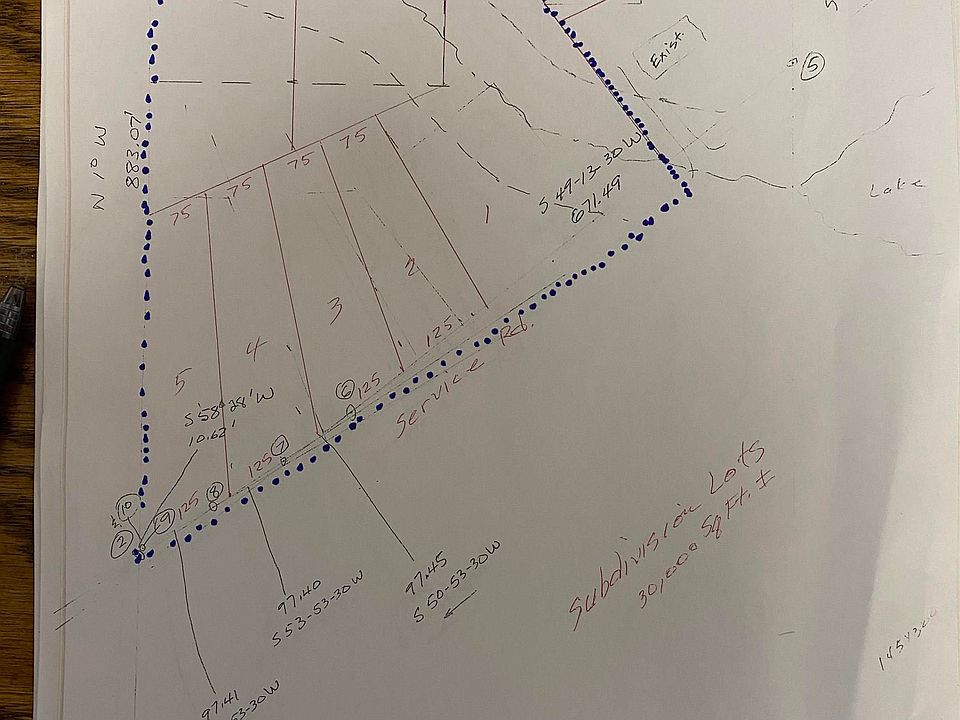 Exist.
5
N 1° W
883.07'
Lake
S 49-13-30 W
671.49
75
75
75
75
1
2
3
4
5
125
125
125
125
6
7
8
9
10
2
S 58°28' W
10.62'
Service Rd.
97.45
S 50-53-30 W
97.40
S 53-53-30 W
97.41
53-30 W
Subdivision Lots
30,000 Sq Ft. ±